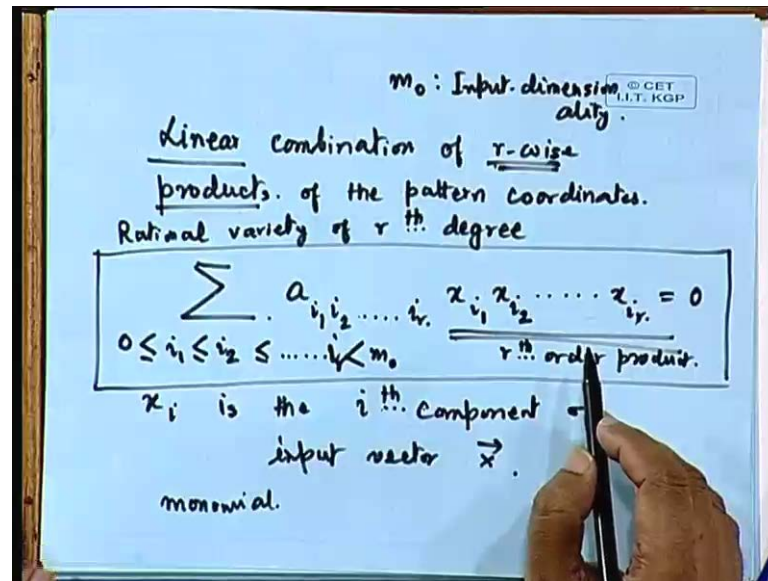 m₀ : Input-dimension
ality.
© CET
I.I.T. KGP
Linear combination of r-wise
products. of the pattern coordinates.
Rational variety of r th degree
∑ a_{i₁ i₂ ..... i_r} x_{i₁} x_{i₂} ...... x_{i_r} = 0
0 ≤ i₁ ≤ i₂ ≤ ...... i_r < m₀ r th order product.
x_i is the i th component
input vector x⃗.
monomial.